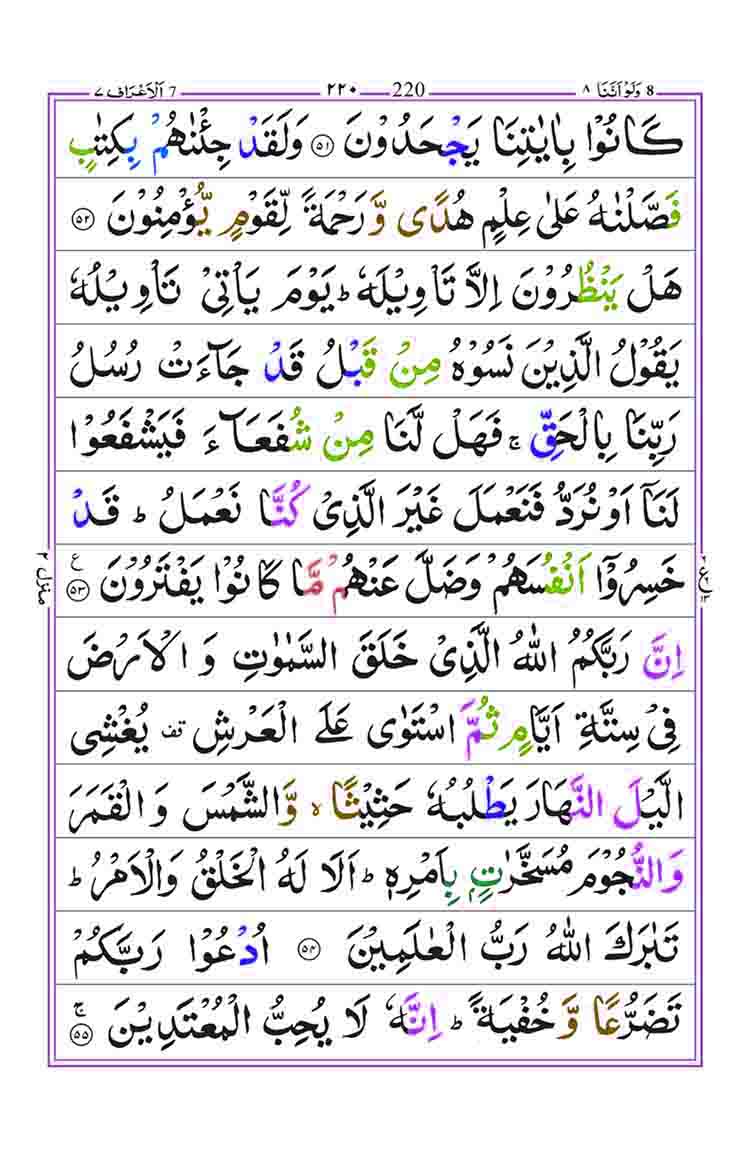 8 وَلَوْ اَنَّنَا ٨ 220 ٢٢٠ 7 اَلْاَعْرَاف ٧
كَانُوْا بِاٰيٰتِنَا يَجْحَدُوْنَ ۝٥١ وَلَقَدْ جِئْنٰهُمْ بِكِتٰبٍ
فَصَّلْنٰهُ عَلٰى عِلْمٍ هُدًى وَّ رَحْمَةً لِّقَوْمٍ يُّؤْمِنُوْنَ ۝٥٢
هَلْ يَنْظُرُوْنَ اِلَّا تَاْوِيْلَهٗ ؕ يَوْمَ يَاْتِىْ تَاْوِيْلُهٗ
يَقُوْلُ الَّذِيْنَ نَسُوْهُ مِنْ قَبْلُ قَدْ جَآءَتْ رُسُلُ
رَبِّنَا بِالْحَقِّ ۚ فَهَلْ لَّنَا مِنْ شُفَعَآءَ فَيَشْفَعُوْا
لَنَاۤ اَوْ نُرَدُّ فَنَعْمَلَ غَيْرَ الَّذِىْ كُنَّا نَعْمَلُ ؕ قَدْ
خَسِرُوْۤا اَنْفُسَهُمْ وَضَلَّ عَنْهُمْ مَّا كَانُوْا يَفْتَرُوْنَ ۝٥٣ ع
اِنَّ رَبَّكُمُ اللّٰهُ الَّذِىْ خَلَقَ السَّمٰوٰتِ وَ الْاَرْضَ
فِىْ سِتَّةِ اَيَّامٍ ثُمَّ اسْتَوٰى عَلَى الْعَرْشِ قف يُغْشِى
الَّيْلَ النَّهَارَ يَطْلُبُهٗ حَثِيْثًا ۙ وَّالشَّمْسَ وَ الْقَمَرَ
وَالنُّجُوْمَ مُسَخَّرٰتٍۭ بِاَمْرِهٖ ؕ اَلَا لَهُ الْخَلْقُ وَالْاَمْرُ ؕ
تَبٰرَكَ اللّٰهُ رَبُّ الْعٰلَمِيْنَ ۝٥٤ اُدْعُوْا رَبَّكُمْ
تَضَرُّعًا وَّ خُفْيَةً ؕ اِنَّهٗ لَا يُحِبُّ الْمُعْتَدِيْنَ ۝٥٥ ۚ
منزل ٢